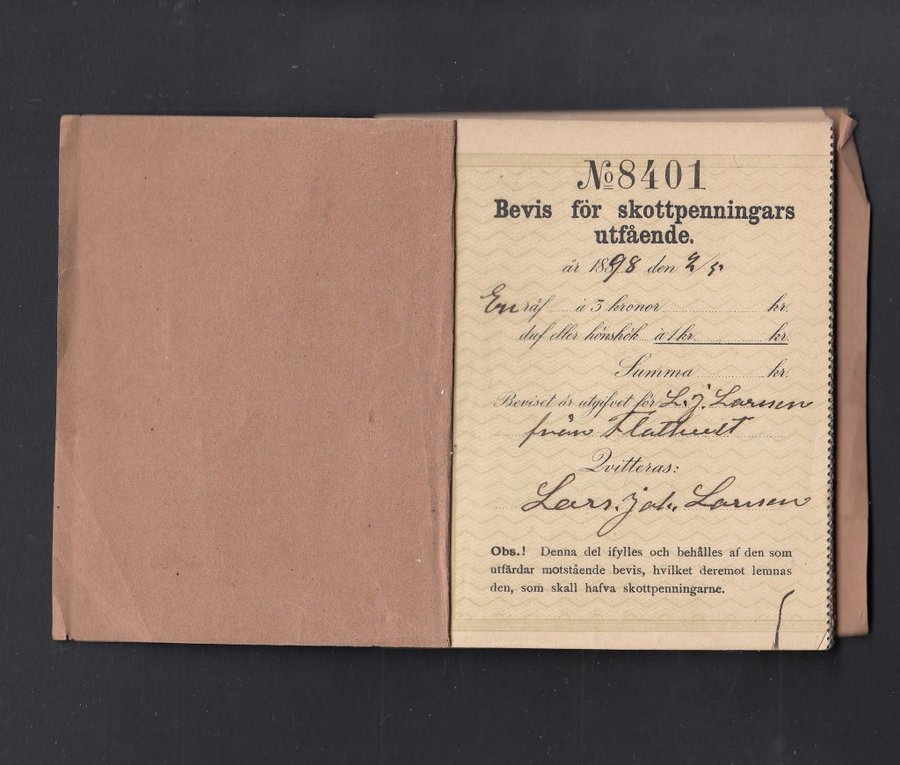 № 8401
Bevis för skottpenningars
utfående.
år 1898 den 2/5
En räf à 3 kronor kr.
duf eller hönshök à 1 kr. kr.
Summa kr.
Beviset är utgifvet för L. J. Larsson
från
Qvitteras:
Lars. Joh. Larsson
Obs.! Denna del ifylles och behålles af den som
utfärdar motstående bevis, hvilket deremot lemnas
den, som skall hafva skottpenningarne.